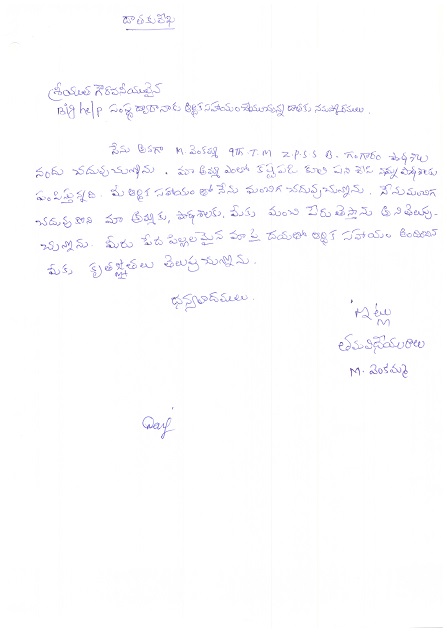 దాతకు లేఖ
శ్రీయుత గౌరవనీయులైన
Big help సంస్థ ద్వారా నాకు ఆర్థిక సహాయం చేయుచున్న దాతకు నమస్కారములు.
నేను అనగా M. వెంకమ్మ 9th T.M Z.P.S.S B. గంగారం పాఠశాల
నందు చదువుచున్నాను. మా అమ్మ ఎంతో కష్టపడి కూలి పని చేసి నన్ను పాఠశాలకు
పంపిస్తున్నది. మీ ఆర్థిక సహాయం తో నేను మంచిగ చదువుచున్నాను. నేను మంచిగ
చదువుకొని మా అమ్మకు, పాఠశాలకు, మీకు మంచి పేరు తెస్తాను అని తెలుపు-
చున్నాను. మీరు పేద పిల్లలమైన మా పై దయతో ఆర్థిక సహాయం అందించి
మీకు కృతజ్ఞతలు తెలుపుచున్నాను.
ధన్యవాదములు.
ఇట్లు
తమ విధేయురాలు
M. వెంకమ్మ